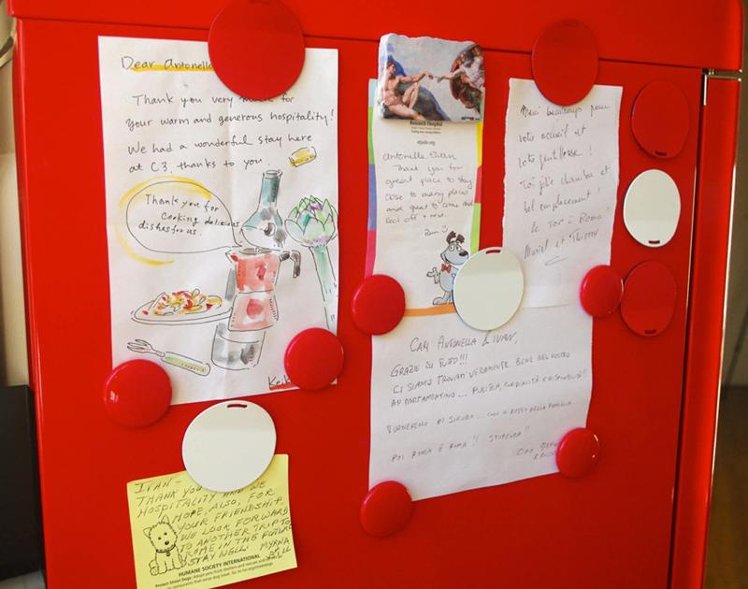 Dear Antonella
Thank you very much for
your warm and generous hospitality!
We had a wonderful stay here
at C3, thanks to you.
Thank you for
cooking delicious
dishes for us.
Antonella & Ivan
Thank you for
great place to stay
close to many places
and great to come and
Merci beaucoup pour
votre accueil et
votre gentillesse!
Très jolie chambre et
bel emplacement!
Le TOP à ROMA!
Muriel et Thierry
CARI ANTONELLA & IVAN,
GRAZIE DI TUTTO!!!
CI SIAMO TROVATI VERAMENTE BENE NEL VOSTRO
APPARTAMENTINO... PULIZIA, CORDIALITÀ E DISPONIBILITÀ!
TORNEREMO DI SICURO...
POI ROMA È ROMA!! STUPENDA!!
IVAN -
THANK YOU
HOSPITALITY AND WE
HOPE, ALSO, FOR
YOUR FRIENDSHIP.
WE LOOK FORWARD
TO ANOTHER TRIP TO
ROME IN THE FUTURE
STAY WELL. MYRNA
BILL
HUMANE SOCIETY INTERNATIONAL